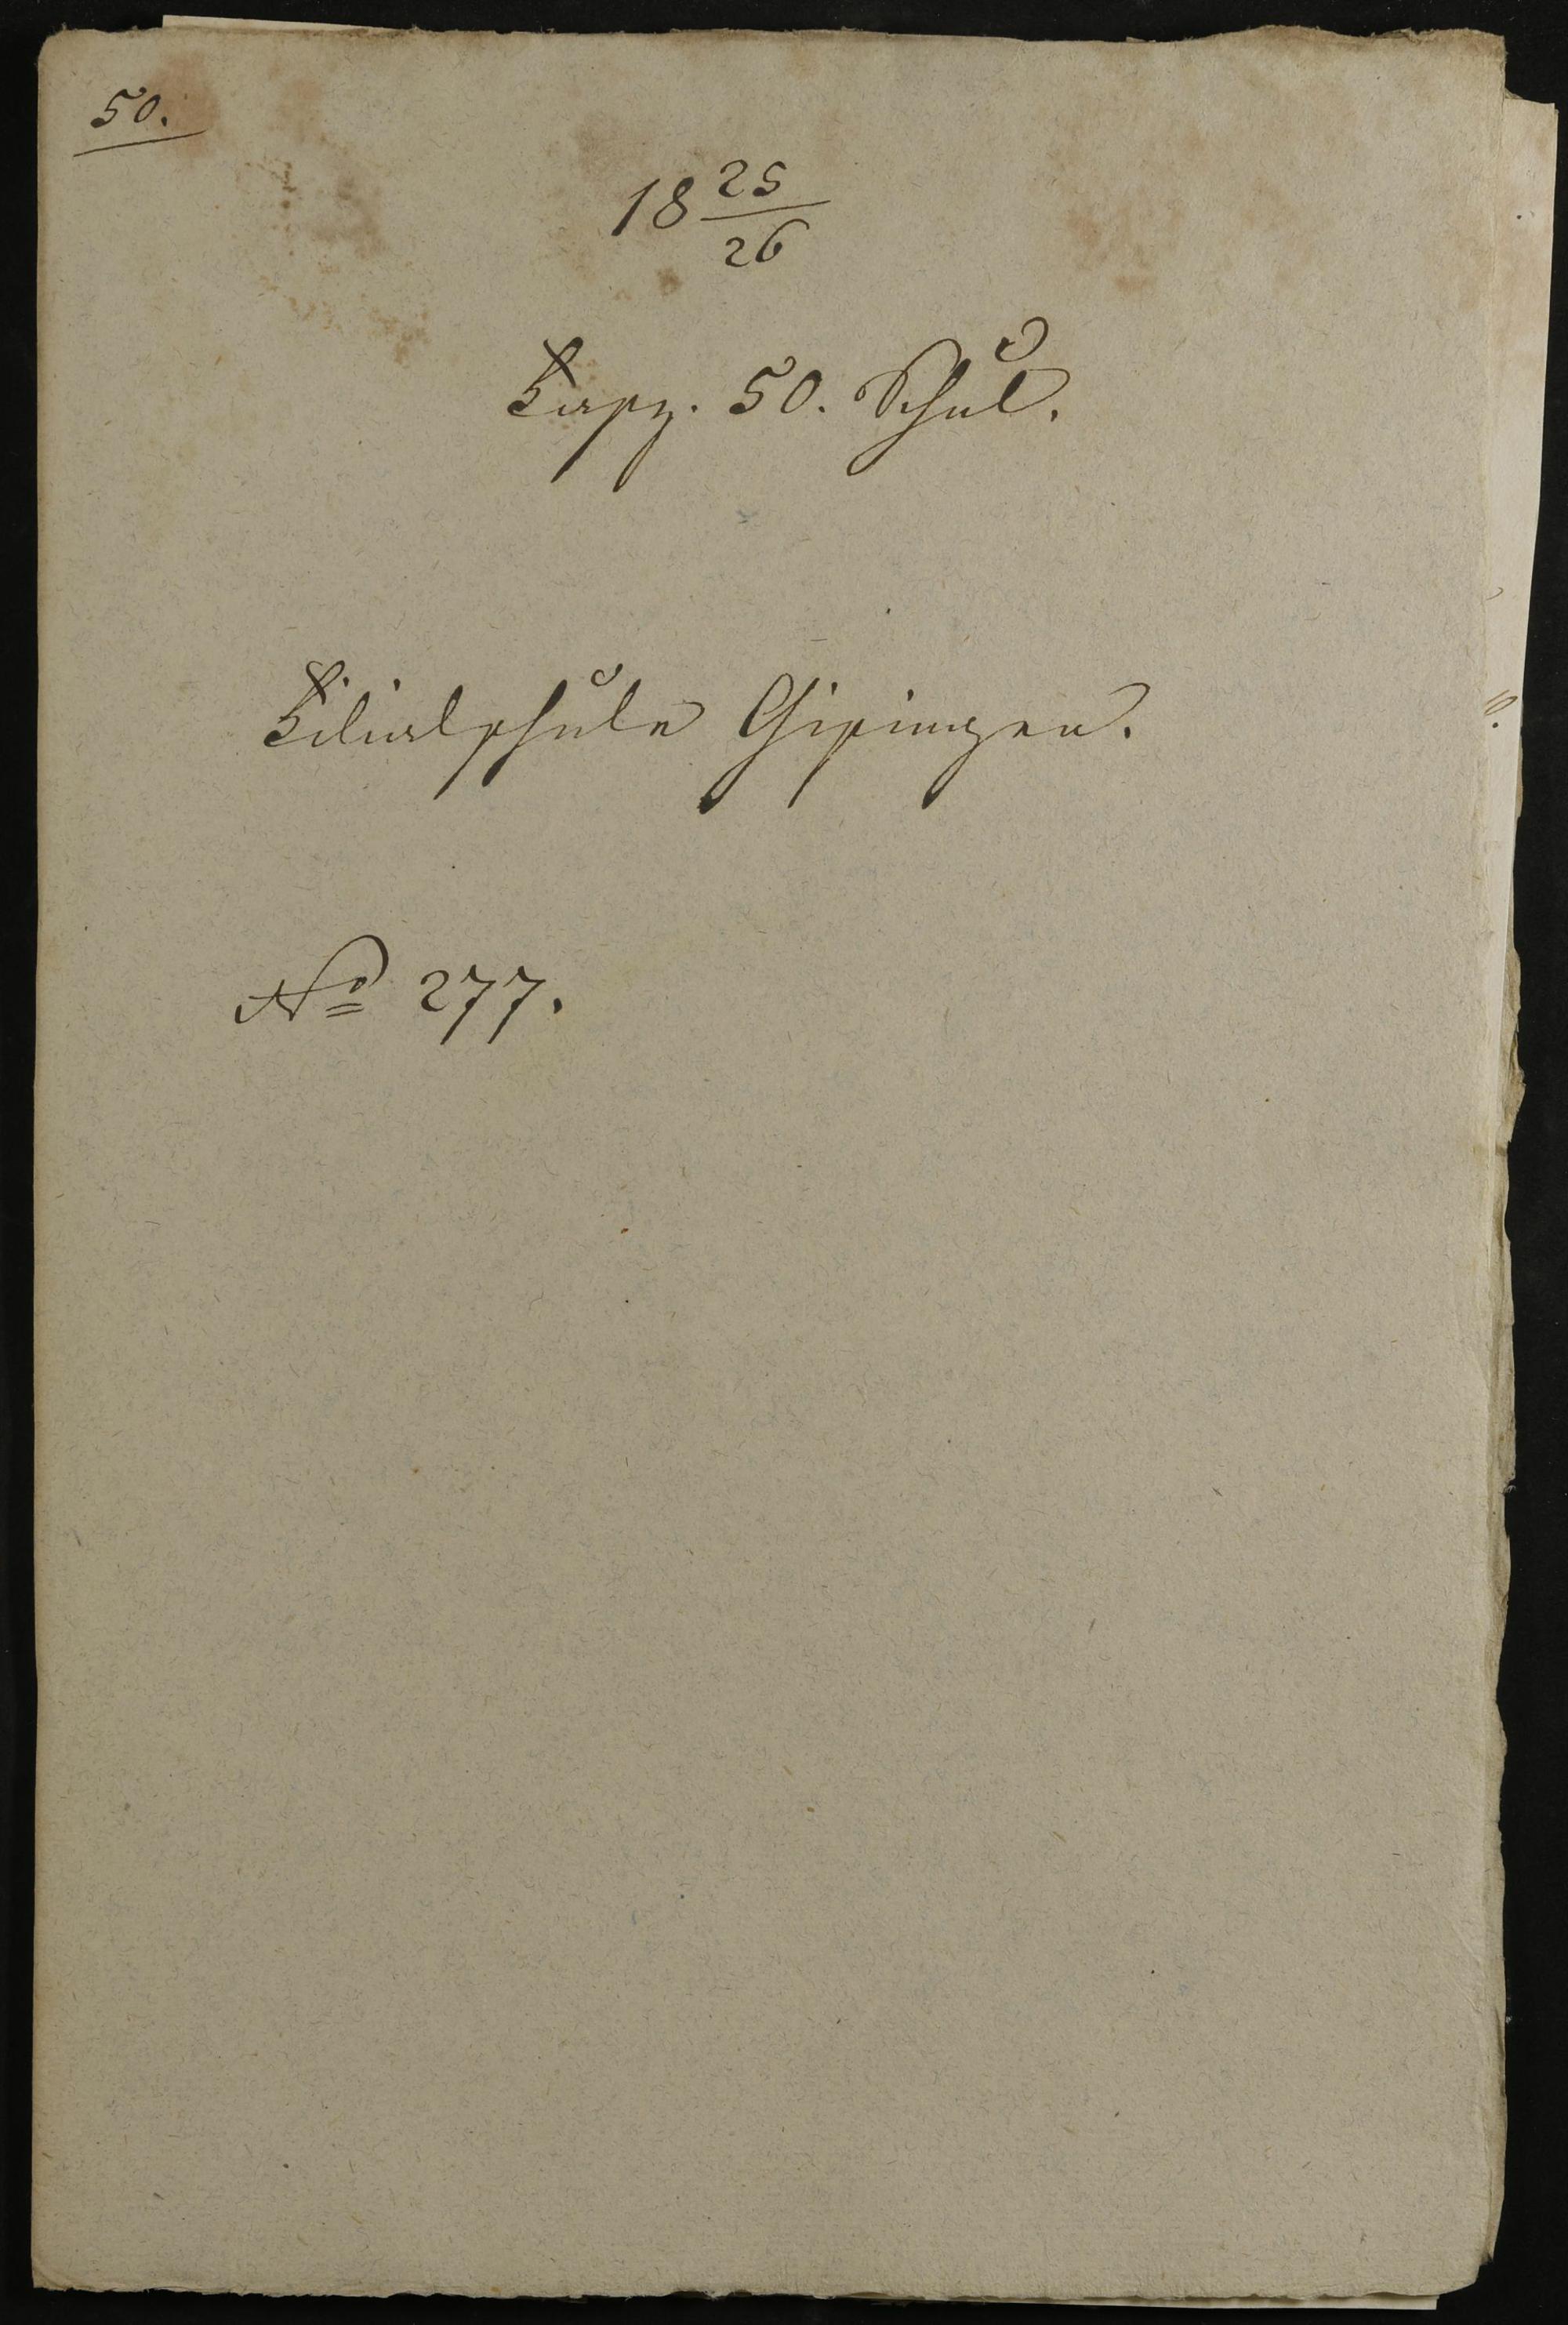 50.
18 25/26
Fasz. 50. Schul.
Filialschule Gipingen.
No 277.